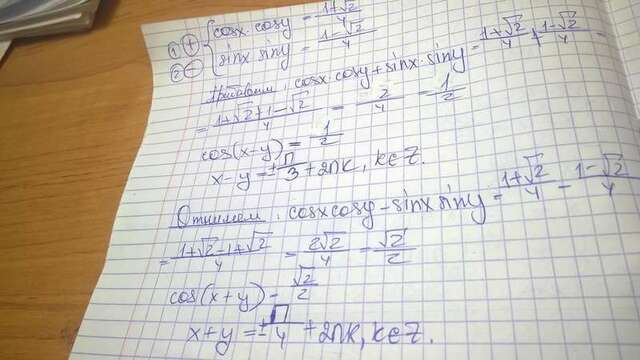 1) + { cosx·cosy = (1+√2)/4
2) − { sinx siny = (1−√2)/4
Прибавим, cosx·cosy + sinx·siny = (1+√2)/4 + (1−√2)/4 =
= (1+√2+1−√2)/4 = 2/4 = 1/2
cos(x−y) = 1/2
x−y = ± π/3 + 2πk, k∈Z.
Отнимем, cosxcosy − sinx siny = (1+√2)/4 − (1−√2)/4
= (1+√2−1+√2)/4 = 2√2/4 = √2/2
cos(x+y) − √2/2
x+y = ± π/4 + 2πk, k∈Z.